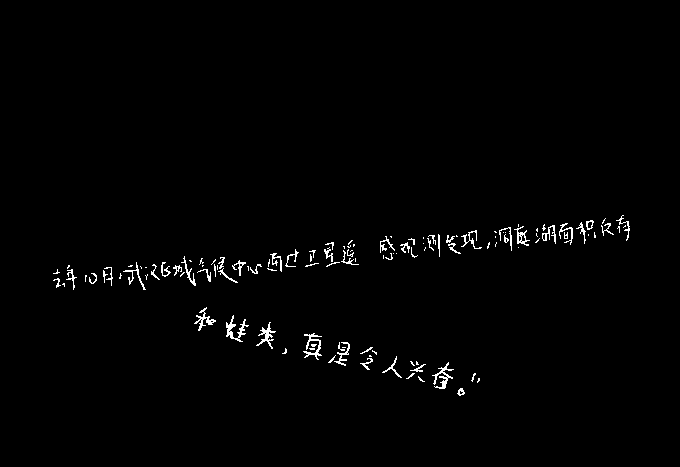 去年10月,武汉区域气候中心通过卫星遥感观测发现,洞庭湖面积仅存
和蛙类,真是令人兴奋。"